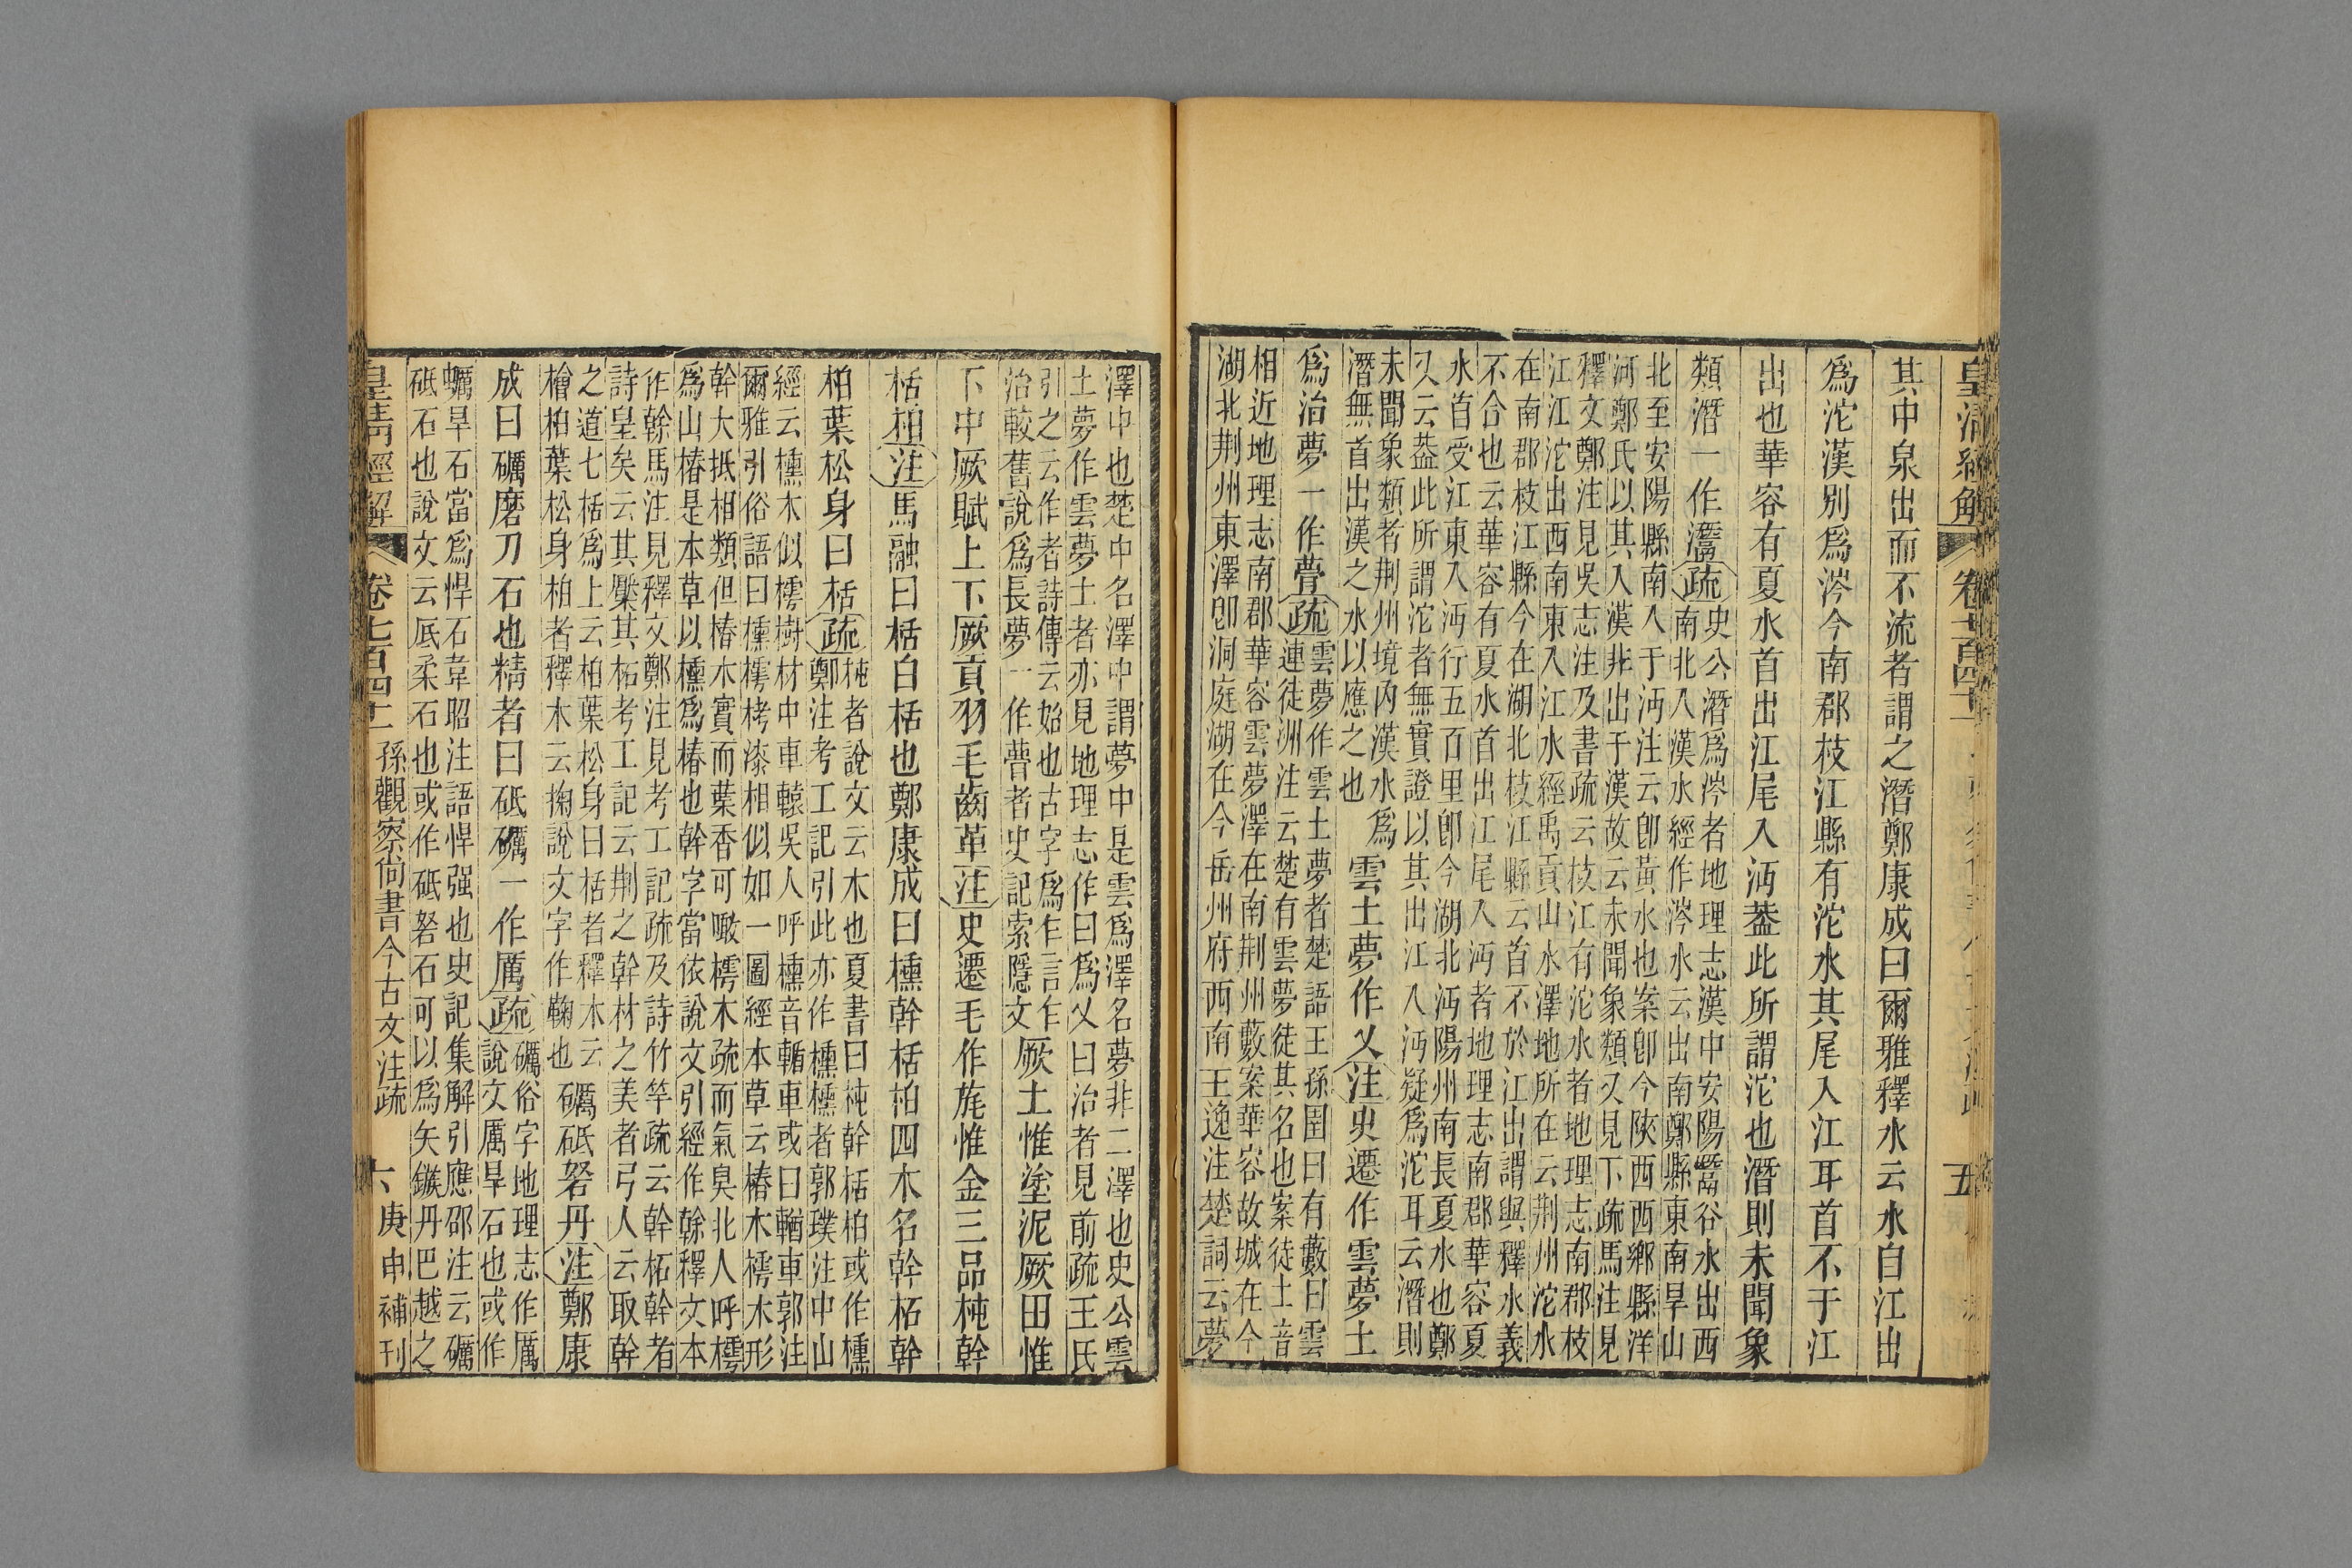 皇清經解
其中泉出而不流者謂之潛鄭康成曰爾雅釋水云水自江出
爲沱漢別爲涔今南郡枝江縣有沱水其尾入江耳首不于江
出也華容有夏水首出江尾入沔葢此所謂沱也潛則未聞象
類潛一作灊疏史公潛爲涔者地理志漢中安陽鬵谷水出西
南北入漢水經作涔水云出南鄭縣東南旱山
北至安陽縣南入于沔注云卽黃水也案卽今陝西西鄉縣洋
河鄭氏以其入漢非出于漢故云未聞象類又見下疏馬注見
釋文鄭注見吳志注及書疏云枝江有沱水者地理志南郡枝
江江沱出西南東入江水經禹貢山水澤地所在云荆州沱水
在南郡枝江縣今在湖北枝江縣云首不於江出謂與釋水義
不合也云華容有夏水首出江尾入沔者地理志南郡華容夏
水首受江東入沔行五百里卽今湖北沔陽州南長夏水也鄭
又云葢此所謂沱者無實證以其出江入沔疑爲沱耳云潛則
未聞象類者荆州境內漢水爲
潛無首出漢之水以應之也
雲土夢作乂注史遷作雲夢土
爲治夢一作瞢疏雲夢作雲土夢者楚語王孫圉曰有藪曰雲
連徒洲注云楚有雲夢徒其名也案徒土音
相近地理志南郡華容雲夢澤在南荆州藪案華容故城在今
湖北荆州東澤卽洞庭湖在今岳州府西南王逸注楚詞云夢
五
澤中也楚中名澤中謂夢中是雲爲澤名夢非二澤也史公雲
土夢作雲夢土者亦見地理志作曰爲乂曰治者見前疏王氏
引之云作者詩傳云始也古字爲乍言乍
治較舊說爲長夢一作瞢者史記索隱文
厥土惟塗泥厥田惟
下中厥賦上下厥貢羽毛齒革注史遷毛作旄惟金三品杶幹
栝柏注馬融曰栝白栝也鄭康成曰櫄幹栝柏四木名幹柘幹
柏葉松身曰栝疏杶者說文云木也夏書曰杶幹栝柏或作櫄
鄭注考工記引此亦作櫄櫄者郭璞注中山
經云櫄木似樗樹材中車轅吳人呼櫄音輴車或曰輶車郭注
爾雅引俗語曰櫄樗栲漆相似如一圖經本草云椿木樗木形
幹大抵相類但椿木實而葉香可噉樗木疏而氣臭北人呼樗
爲山椿是本草以櫄爲椿也幹字當依說文引經作榦釋文本
作榦馬注見釋文鄭注見考工記疏及詩竹竿疏云幹柘幹者
詩皇矣云其檿其柘考工記云荆之幹材之美者弓人云取幹
之道七栝爲上云柏葉松身曰栝者釋木云
檜柏葉松身柏者釋木云椈說文字作鞠也
礪砥砮丹注鄭康
成曰礪磨刀石也精者曰砥礪一作厲疏礪俗字地理志作厲
說文厲旱石也或作
蠣旱石當爲悍石韋昭注語悍强也史記集解引應邵注云礪
砥石也說文云厎柔石也或作砥砮石可以爲矢鏃丹巴越之
皇清經解
卷七百四十一
孫觀察尙書今古文注疏
六
庚申補刊